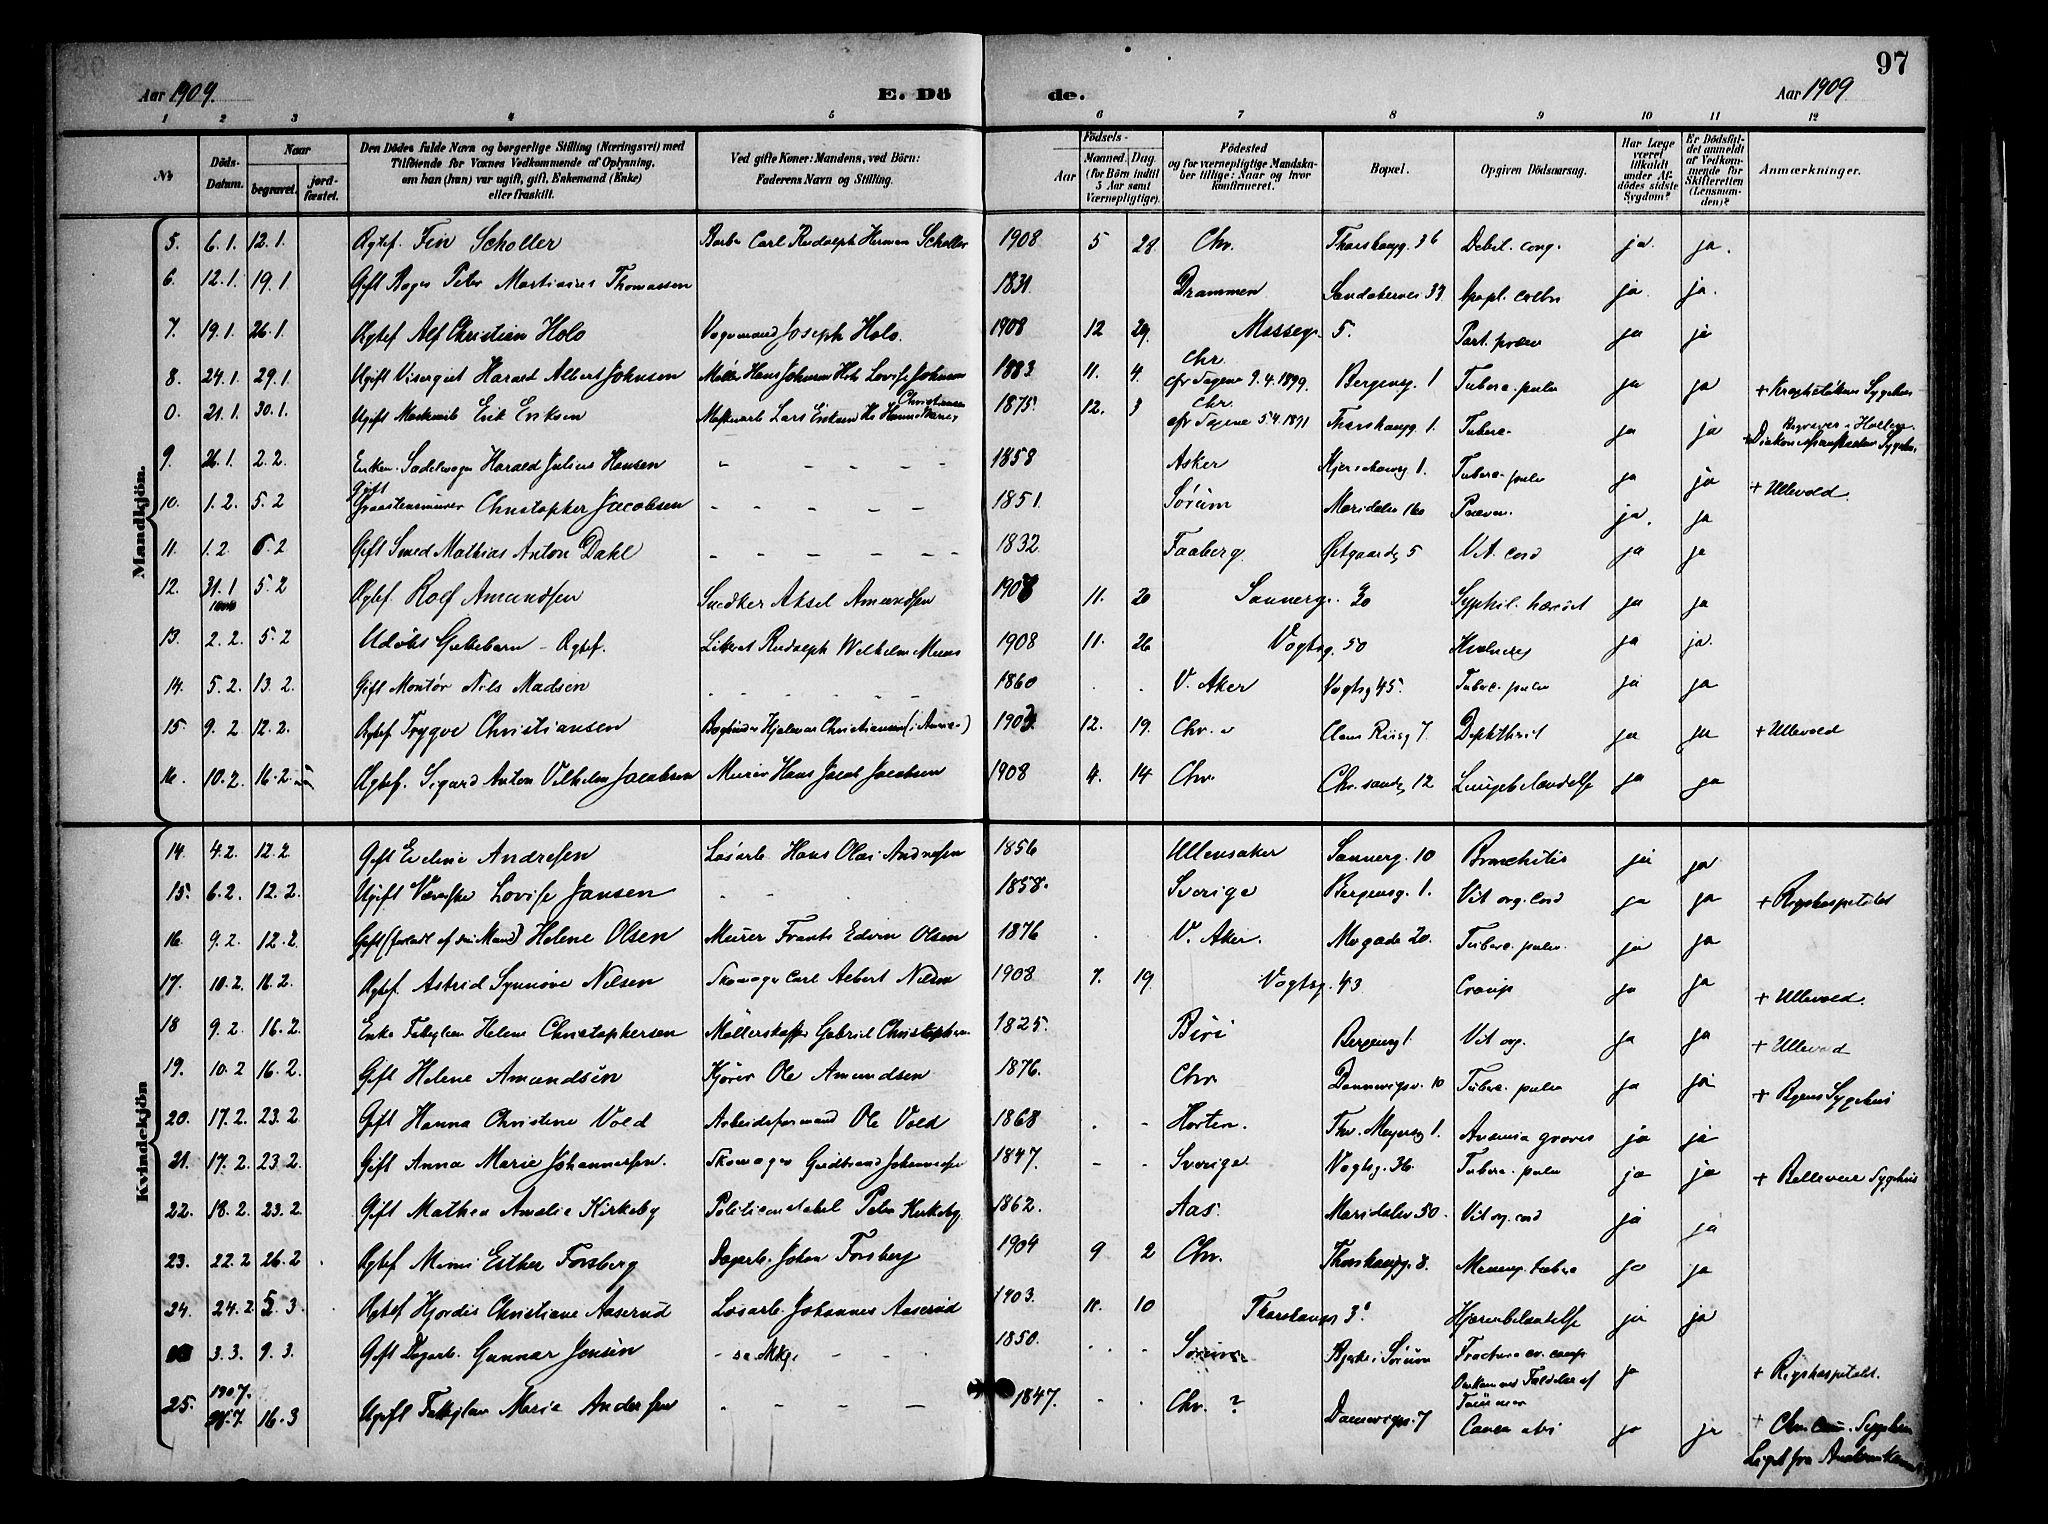 97
Aar 1909. E. Dö de. Aar 1909
1 2 3 4 5 6 7 8 9 10 11 12
№ Döds-Datum. Naar begravet. jordfæstet. Den Dödes fulde Navn og borgerlige Stilling (Næringsvei) med Tilföiende for Voxnes Vedkommende af Oplysning, om han (hun) var ugift, gift, Enkemand (Enke) eller fraskilt. Ved gifte Koner: Mandens, ved Börn: Faderens Navn og Stilling. Födsels- Aar Maaned. Dag. (for Börn indtil 5 Aar samt Værnepligtige). Födested og for værnepligtige Mandskaber tillige: Naar og hvor konfirmeret. Bopæl. Opgiven Dödsaarsag. Har Læge været tilkaldt under Afdödes sidste Sygdom? Er Dödsfaldet anmeldt af Vedkommende for Skifteretten (Lensmanden)? Anmærkninger.
Mandkjön.
5. 6.1. 12.1. Ægtef. Fin Scholler Carl Rudolph Herman Scholler 1908 5 28. Chr. Thorshaugg. 36 Debil. cong. ja ja.
6. 12.1. 19.1 Gift Peter Martinius Thomassen 1831 Drammen 33 Apopl. ja ja.
7. 19.1. 26.1. Ægtef Alf Christian Holo Vognmand Joseph Holo. 1908 12 29. 5. Part. præm ja ja
8. 24.1. 29.1. Ugift Visergut Harald Albert Johnsen Møller Hans Johnsen Lovise Johnsen 1883. 11. 4. Chr. cfr Sagene 9.4.1899. Bergensg. 1 Tuberc. pulm ja ja + Krogstøttens Sygehus
0. 21.1. 30.1. Ugift Erik Eriksen Lars Eriksen Hanne Christiansen 1875. 12. 3 Chr. cfr Sagene 5.4.1891 Thorshaugg. 1. Tuberc. ja ja Begraves i
9. 26.1. 2.2. Enkem. Sadelmager Harald Julius Hansen - - - - 1858 Asker 1. Tuberc. pulm ja ja + Sygehus.
10. 1.2. 5.2 Gift Christopher Jacobsen - - - - - 1851. Sørum Maridalsv 160 Pneum. ja. ja + Ullevold.
11. 1.2. 6.2 Gift Smed Mathias Anton Dahl - - - - - 1832. Faaberg. Østgaardsg 5 Vit. cord ja ja
12. 31.1 5.2 Ægtef. Rolf Amundsen Snedker Aksel Amundsen 190 11. 20 Sannerg. 20 Syphil. ja ja
13. 2.2. 5.2 Udøbt Guttebarn - Ægtef. Rudolph Wilhelm 1908 11. 26 Vogtsg. 50 ja ja.
14. 5.2. 13.2. Gift Montør Nils Madsen - - - - 1860 . . V. Aker Vogtsg 45. Tuberc. pulm ja ja
15. 9.2 12.2. Ægtef Trygve Christiansen Bogbinder Hjalmar Christiansen (i Amer.) 190 12. 19. Chr. Claus Riisg 7. Diphtherit ja ja + Ullevold
16. 10.2. 16.2. Ægtef. Sigurd Anton Vilhelm Jacobsen Murer Hans Jacob Jacobsen 1908 4. 14 Chr. Chr.sandsg 12 Lungebetændelse ja ja
Kvindekjön
14. 4.2. 12.2 Gift Eveline Andresen Løsarb. Hans Olai Andresen 1856 Ullensaker Sannerg. 10 Bronchitis ja ja
15. 6.2. 12.2. Ugift Væverske Lovise Jansen - - 1858. Sverige Bergensg. 1. Vit org. cord ja ja + Rigshospitalet
16. 9.2. 12.2. Gift (forladt af sin Mand) Helene Olsen Murer Frants Edvin Olsen 1876 . . V. Aker. Mogade 20. Tuberc. pulm. ja ja
17. 10.2. 16.2. Ægtef. Astrid Synnøve Nilsen Skomager Carl Albert Nilsen 1908. 7. 19. Vogtsg. 43 Croup ja ja + Ullevold.
18 9.2. 16.2. Enke Helene Christophersen Gabriel Christophersen 1825. Biri Bergensg 1. Vit org. ja ja + Ullevold
19. 10.2 16.2. Gift Helene Amundsen Kjører Ole Amundsen 1876. Chr. Dannevigsv. 10 Tuberc. pulm ja ja + Byens Sygehus
20. 17.2. 23.2 Gift Hanna Christine Vold Arbeidsformand Ole Vold 1868 . - Horten. Thv. Meyersg 1. Anæmia graves ja ja
21. 17.2. 23.2. Gift Anna Marie Johannessen. Skomager Gudbrand Johannessen 1847. - - Sverige. Vogtsg. 36. Tuberc. pulm ja ja + Bellevue Sygehus
22. 18.2. 23.2. Gift Mathea Amalie Kirkeby Politikonstabel Peter Kirkeby. 1862. Aas. Maridalsv 50. Vit org. cord ja ja
23. 22.2 26.2 . Ægtef Esther Forsberg Dagarb. Johan Forsberg 1904 9 2 Chr. Thorshaugg. 8. Mening. tuberc ja ja
24. 24.2 5.3. Ægtef Hjørdis Christiane Aaserud Løsarb. Johannes Aaserud 1903. 11. 10 Thorshaugg 3. Hjernebetændelse ja ja
3.3. 9.3. Gift Dagarb. Gunnar Jensen - se Mkj. - - - 1850. . . Sørum Bjerke i Sørum Fractura ja + Rigshospitalet.
25. 1907. 16.3 Ugift Marie Andersen - - - - 1847. - . Chr. ? Dannevigsv. 7 Cancer ja ja + Sygehus
Liget fra